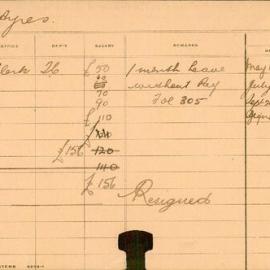 Ayres.
OFFICE DEP'T SALARY REMARKS
Clerk 26 £50 1 month leave May
60 without Pay July
70 Fol 305 Sept
90
£110
£156 120
140
£156 Resigned